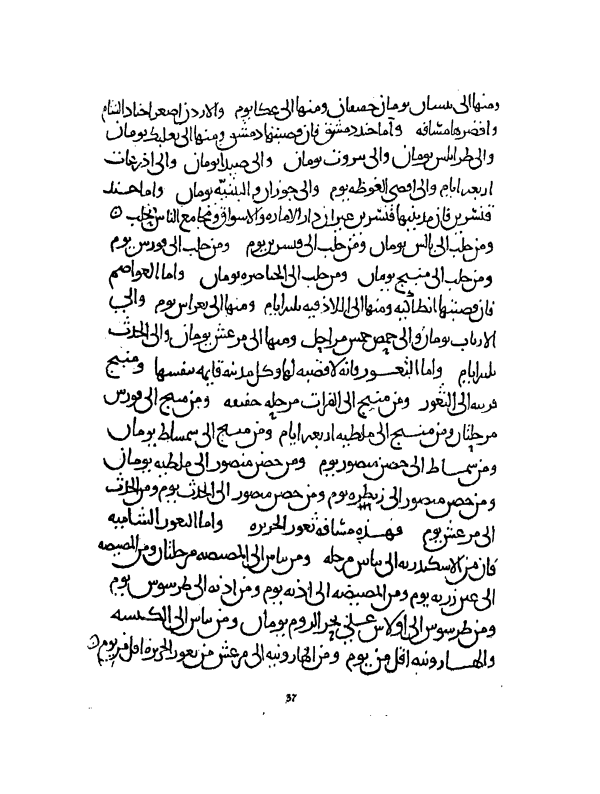 ومنها الى بيسان يومان خفيفان ومنها الى عكا يوم والاردن اصغر اجناد الشام
واقصرها مسافه واما جند دمشق فان قصبتها دمشق ومنها الى بعلبك يومان
والى طرابلس يومان والى بيروت يومان والى صيدا يومان والى اذرعات
اربعه ايام والى اقصى الغوطه يوم والى حوران والبثنيه يومان واما جند
قنسرين فان مدينتها قنسرين غير ان دار الاماره والاسواق ومجامع الناس بحلب
ومن حلب الى بالس يومان ومن حلب الى قنسرين يوم ومن حلب الى قورس يوم
ومن حلب الى منبج يومان ومن حلب الى الخناصره يومان واما العواصم
فان قصبتها انطاكيه ومنها الى اللاذقيه ثلثه ايام ومنها الى بغراس يوم والى
الاثارب يومان والى حمص خمس مراحل ومنها الى مرعش يومان والى الحدث
ثلثه ايام واما الثغور فانه لا قصبه لها وكل مدينه قايمه بنفسها ومنبج
قريبه الى الثغور ومن منبج الى الفرات مرحله خفيفه ومن منبج الى قورس
مرحلتان ومن منبج الى ملطيه اربعه ايام ومن منبج الى سميساط يومان
ومن سميساط الى حصن منصور يوم ومن حصن منصور الى ملطيه يومان
ومن حصن منصور الى زبطره يوم ومن حصن منصور الى الحدث يوم ومن الحدث
الى مرعش يوم فهذه مسافه ثغور الجزيره واما الثغور الشاميه
فان من الاسكندريه الى بياس مرحله ومن بياس الى المصيصه مرحلتان ومن المصيصه
الى عين زربه يوم ومن المصيصه الى اذنه يوم ومن اذنه الى طرسوس يوم
ومن طرسوس الى اولاس على بحر الروم يومان ومن بياس الى الكنيسه
والهارونيه اقل من يوم ومن الهارونيه الى مرعش من ثغور الجزيره اقل من يوم
37